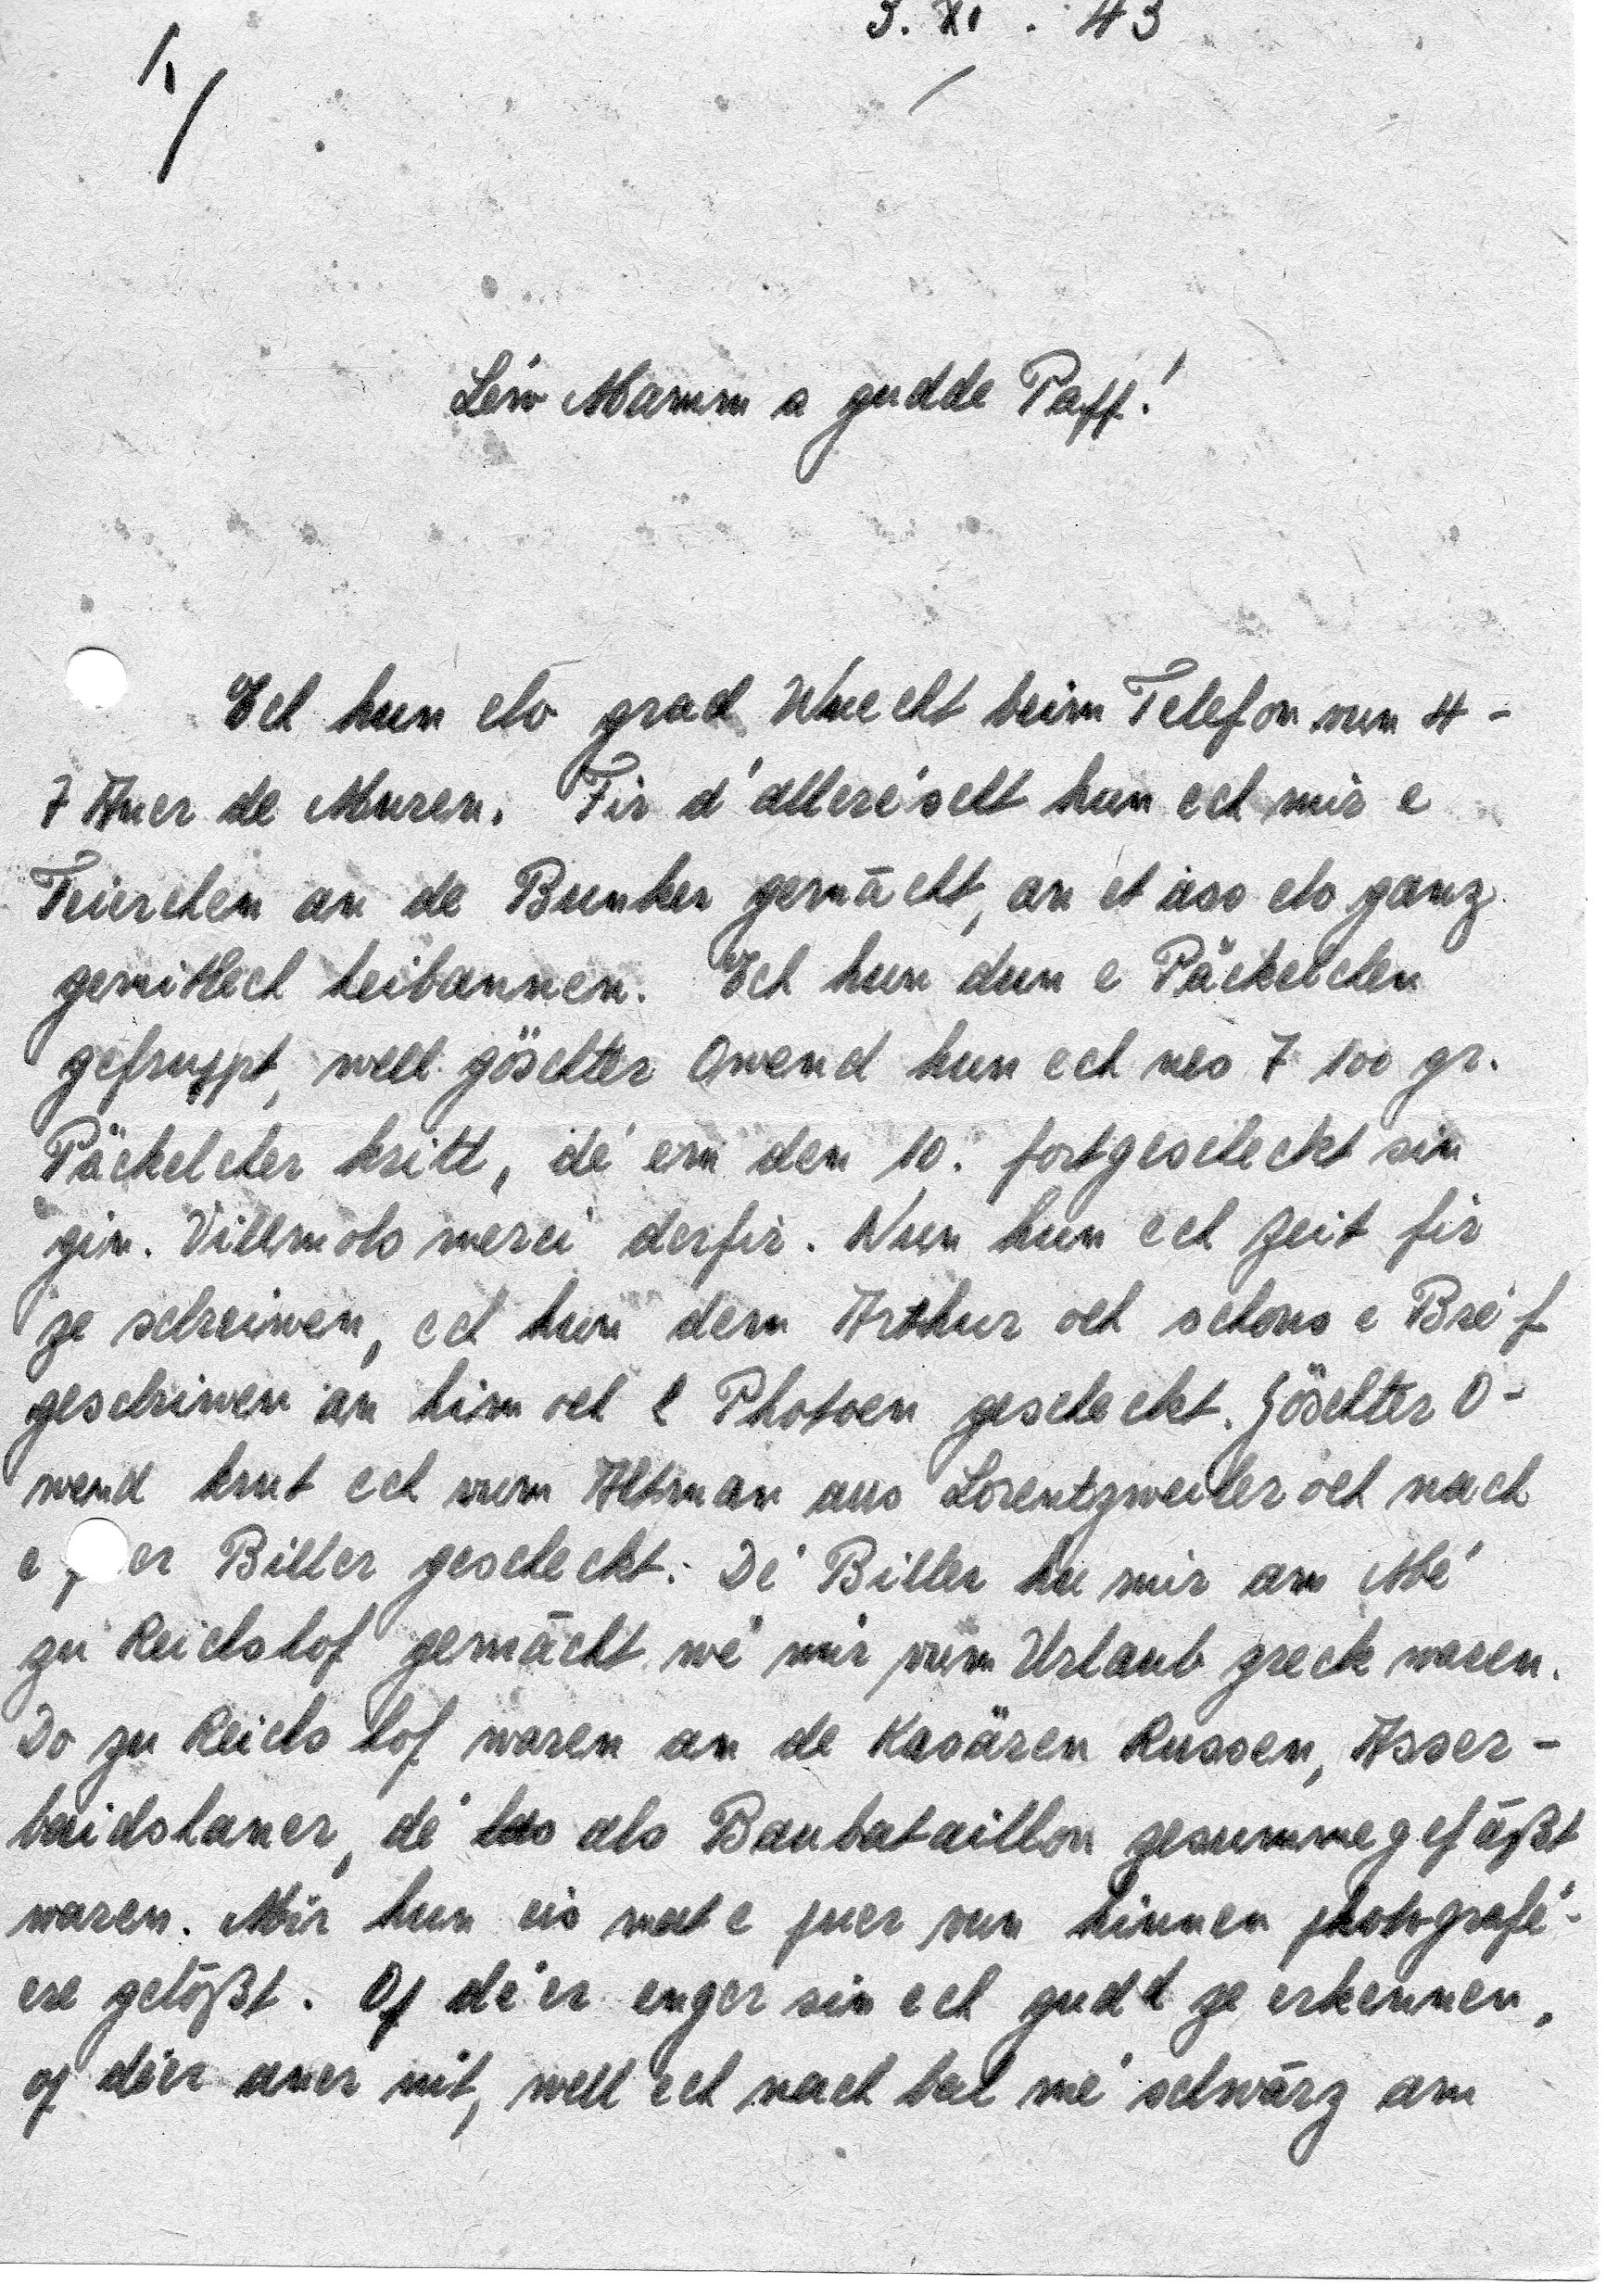 3. XI. 43
1/
Léiw Mamm a gudde Paff!
Ech hun elo grad Wuecht beim Telefon vun 4-
7 Auer de Muren. Fir d'alleréischt hun ech mir e
Feierchen an de Bunker gemācht, an et ass elo ganz
gemittlech heibannen. Ech hun dun e Päckelchen
gefruppt, well göschter Owend hun ech nes 7 100 gr.
Päckelcher kritt, dé em den 10. fortgescheckt sin
gin. Villmols merci derfir. Nun hun ech Zeit fir
ze schreiwen, ech hun dem Arthur och schons e Bréf
geschriwen an him och 2 Photoen gescheckt. Göschter O-
wend krut ech vum Altman aus Lorentzweiler och nach
e puer Biller gescheckt. Dé Biller hu mir am Mé
zu Reichshof gemācht wé mir vum Urlaub zreck waren.
Do zu Reichshof waren an de Kasären Russen, Asser-
baidshaner, dé als Baubataillon zesummegefāßt
waren. Mir hun eis mat e puer vun hinnen photografé-
ere gelößt. Op déer enger sin ech gudd ze erkennen,
op déer aner nit, well ech nach bal mé schwārz am